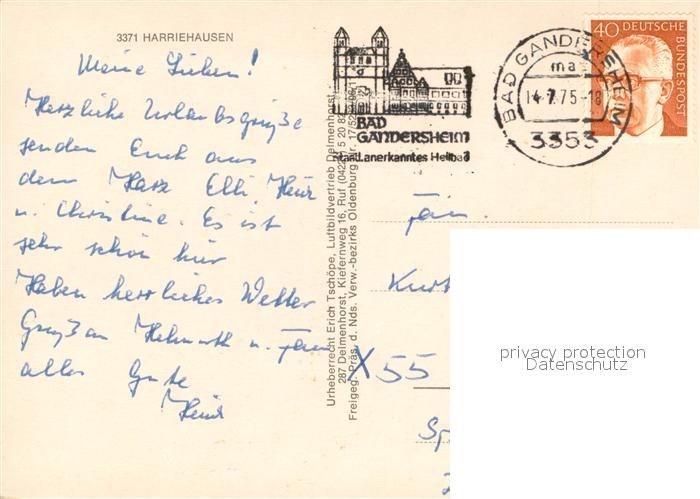 3371 HARRIEHAUSEN
Meine Lieben!
Herzliche Urlaubsgrüße
senden Euch aus
dem Harz Elli, Heinz
u. Christine. Es ist
sehr schön hier
Haben herrliches Wetter
Gruß an Helmuth u.
alles Gute
Heinz
Urheberrecht Erich Tschöpe, Luftbildvertrieb Delmenhorst
287 Delmenhorst, Kiefernweg 16, Ruf (0422
Freigeg. Präs. d. Nds. Verw.-bezirks Oldenburg Nr. 17/52
BAD
GANDERSHEIM
Staatl. anerkanntes Heilbad
BAD GANDERSHEIM
ma
14.7.75-18
3353
40 DEUTSCHE
BUNDESPOST
Fam.
Kurt
X 55
Sp
privacy protection
Datenschutz